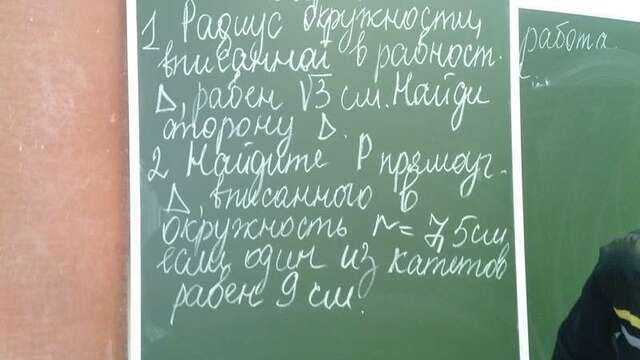 1 Радиус окружности,
вписанной в равност.
Δ, равен √3 см. Найди
сторону Δ.
2 Найдите P прямоуг.
Δ, вписанного в
окружность r = 7,5 см
если один из катетов
равен 9 см.
работа